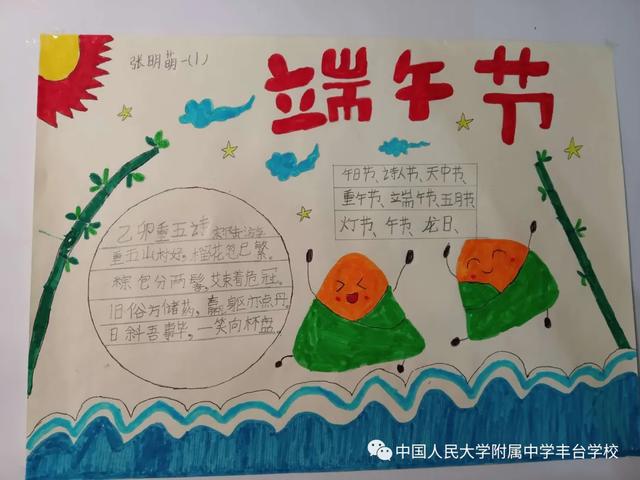 张明萌一(1)
端午节
午日节、诗人节、天中节、
重午节、端午节、五月节、
灯节、午节、龙日、
乙卯重五诗
重五山村好，榴花忽已繁。
粽包分两髻，艾束著危冠。
旧俗方储药，羸躯亦点丹。
日斜吾事毕，一笑向杯盘。
中国人民大学附属中学丰台学校